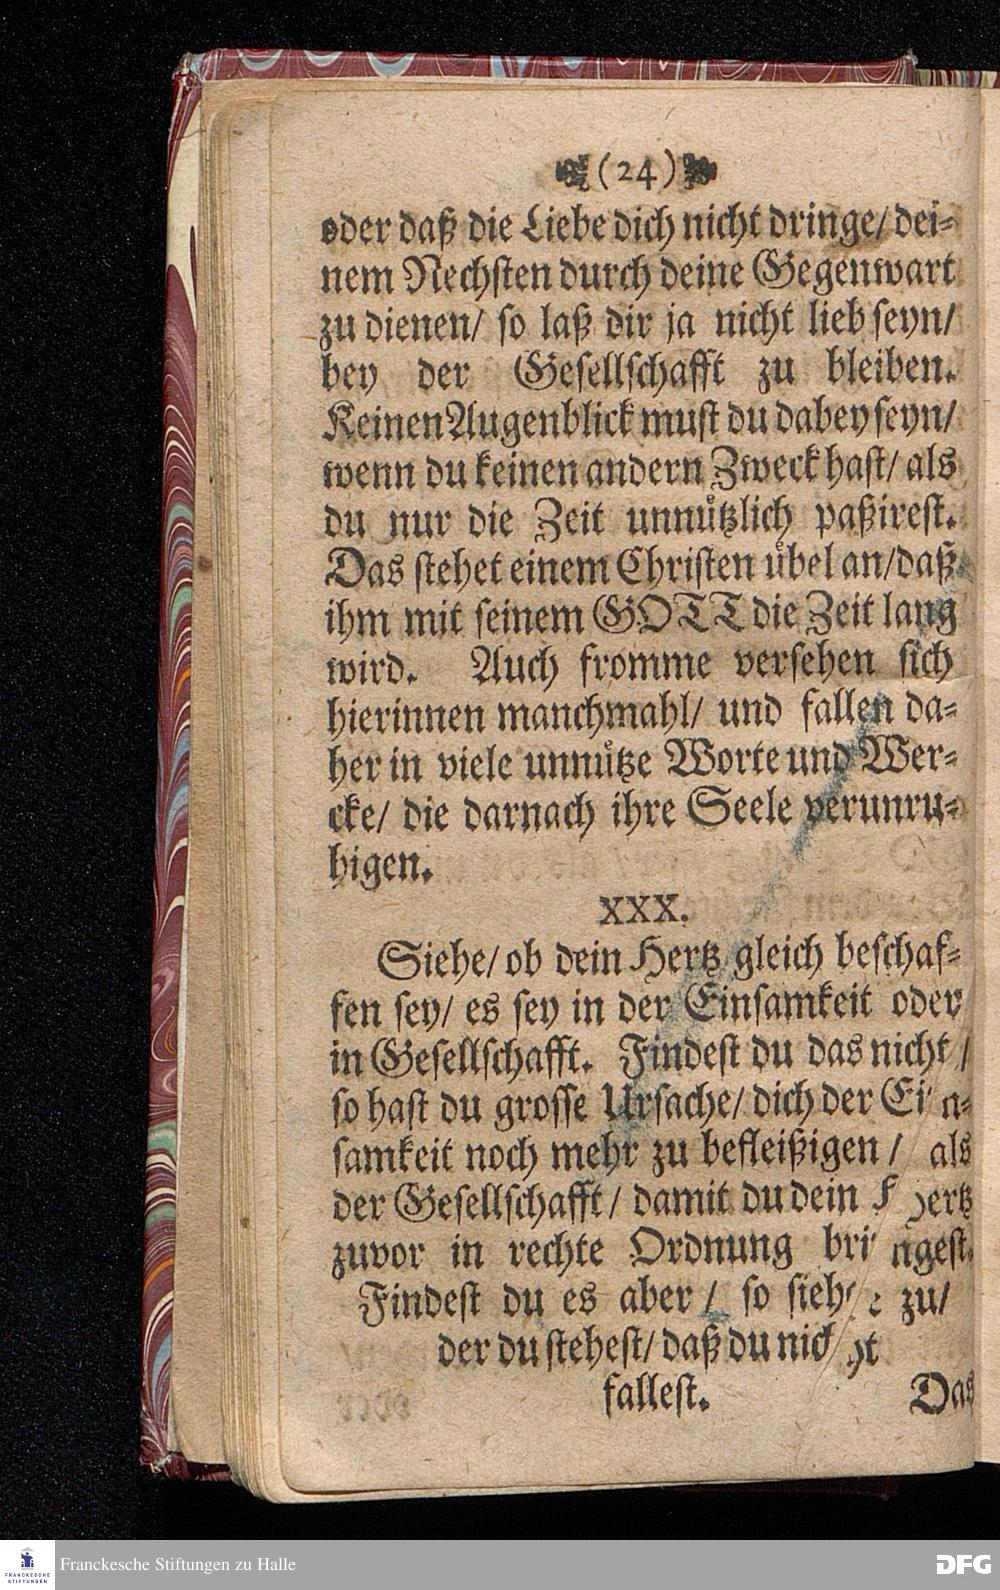 (24)
oder daß die Liebe dich nicht dringe/ dei-
nem Nechsten durch deine Gegenwart
zu dienen/ so laß dir ja nicht lieb seyn/
bey der Gesellschafft zu bleiben.
Keinen Augenblick must du dabey seyn/
wenn du keinen andern Zweck hast/ als
du nur die Zeit unnuͤtzlich paßirest.
Das stehet einem Christen uͤbel an/ daß
ihm mit seinem GOTT die Zeit lang
wird. Auch fromme versehen sich
hierinnen manchmahl/ und fallen da-
her in viele unnuͤtze Worte und Wer-
cke/ die darnach ihre Seele verunru-
higen.
XXX.
Siehe/ ob dein Hertz gleich beschaf-
fen sey/ es sey in der Einsamkeit oder
in Gesellschafft. Findest du das nicht/
so hast du grosse Ursache/ dich der Ein-
samkeit noch mehr zu befleißigen/ als
der Gesellschafft/ damit du dein Hertz
zuvor in rechte Ordnung bringest.
Findest du es aber/ so siehe zu/
der du stehest/ daß du nicht
fallest.
Das
Franckesche Stiftungen zu Halle
FRANCKESCHE
STIFTUNGEN
DFG